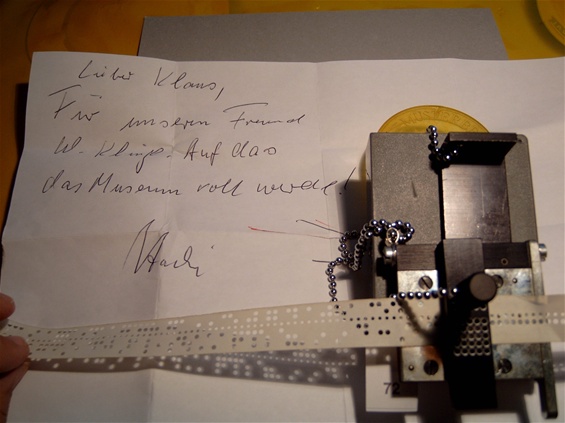 Lieber Klaus,
Für unseren Freund
W. Klinje. Auf das
das Museum voll werde!
72